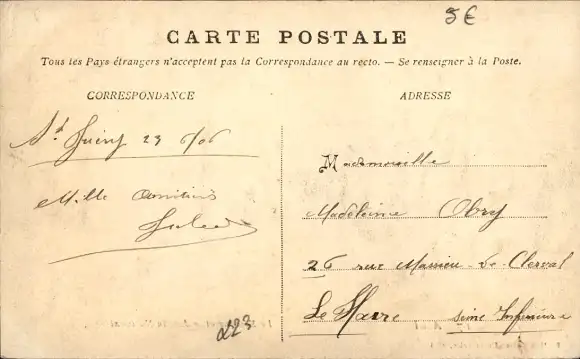 5€
CARTE POSTALE
Tous les Pays étrangers n'acceptent pas la Correspondance au recto. — Se renseigner à la Poste.
CORRESPONDANCE
ADRESSE
23 6/06
Mille Amitiés
Mademoiselle
Madeleine Obry
26 rue Massieu de Clerval
Le Havre Seine Inférieure
223